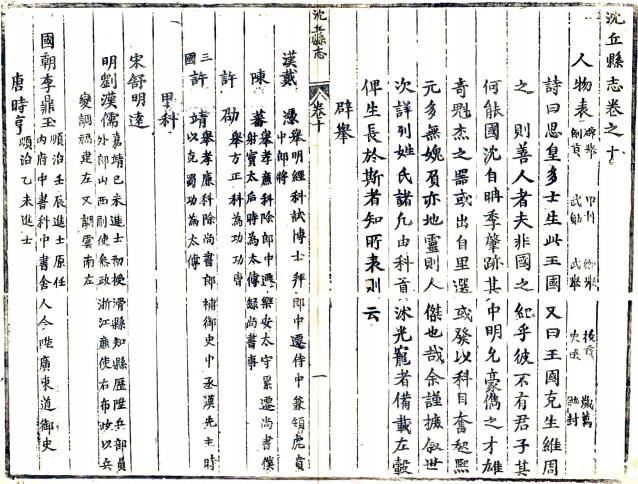 沈丘縣志卷之十
人物表 辟舉 甲科 鄉舉 拔貢 歲薦
例貢 武勛 武舉 吏 封
詩曰思皇多士生此王國 又曰王國克生維周
之 則善人者夫非國之 紀乎彼不有君子其
何能國沈自聃季肇跡其 中明允豪儁之才雄
奇魁杰之器或出自里選 或發以科目奮起熙
元多無媿 亦地靈則人 傑也哉余謹據叙世
次詳列姓氏諸凡由科首 沐光寵者備載左
俾生長於斯者知所表則云
辟舉
沈丘縣志 卷十 一
漢戴 憑 舉明經科試博士拜郎中遷侍中兼領虎賁
中郎將
陳 蕃 舉孝廉科除郎中遷樂安太守累遷尚書僕
射竇太后時為太傅録尚書事
許 劭 舉方正科為功曹
三國許 靖 舉孝廉科除尚書郎補御史中丞漢先主時
以克蜀功為太傅
甲科
宋舒明逵
明劉漢儒 嘉靖己未進士初授滑縣知縣歷陞兵部員
外郎山西副使叅政浙江廉使右布政以兵
變調福建左又調雲南左
國朝李鼎玉 順治壬辰進士原任
内府中書科中書舍人今陞廣東道御史
唐時亨 順治乙未進士